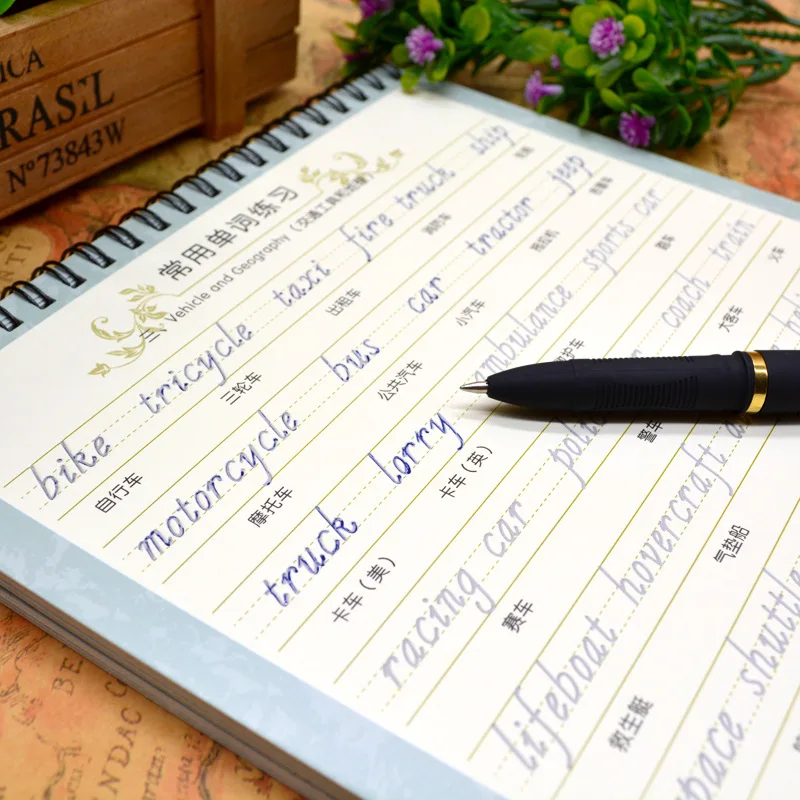 ICA
RASIL
Nº73843W
常用单词练习
三、Vehicle and Geography (交通工具
bike tricycle taxi fire truck ship
自行车 三轮车 出租车 消防车
motorcycle bus car tractor jeep
摩托车 公共汽车 小汽车 拖拉机
truck lorry ambulance sports car
卡车(美) 卡车(英) 跑车
racing car coach train
赛车 警车 大客车 火车
lifeboat hovercraft
救生艇 气垫船
space shuttle